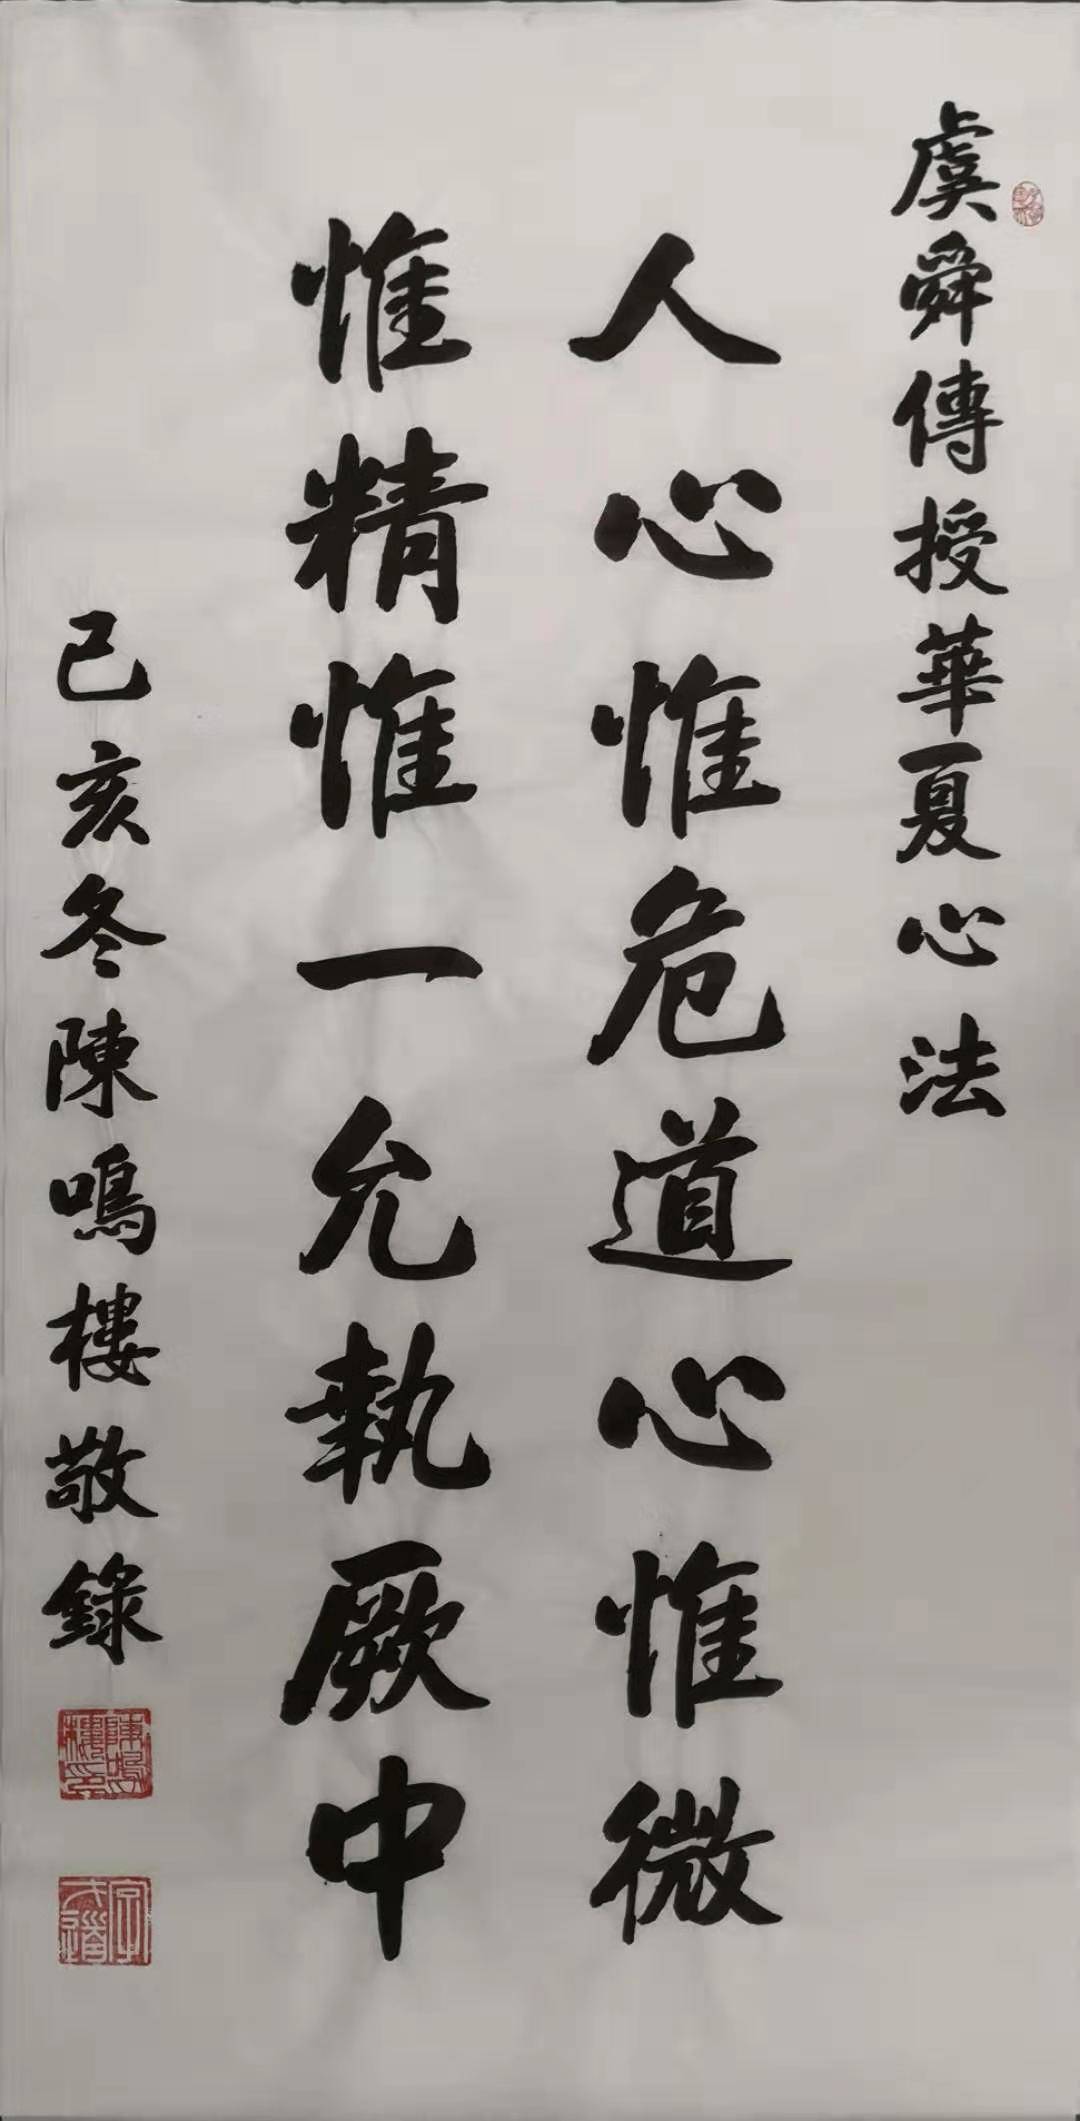 虞舜傳授華夏心法
人心惟危道心惟微
惟精惟一允執厥中
己亥冬陳鳴樓敬錄
陳鳴樓印